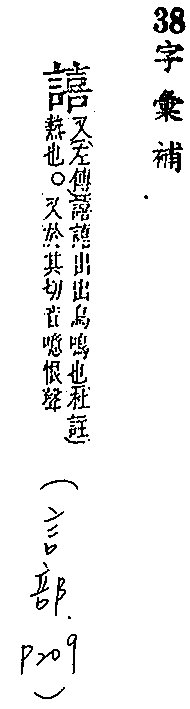 38字彙補
譆
又左傳譆譆出出鳥鳴也杜註
熱也○又於其切音噫恨聲
(言部.P209)